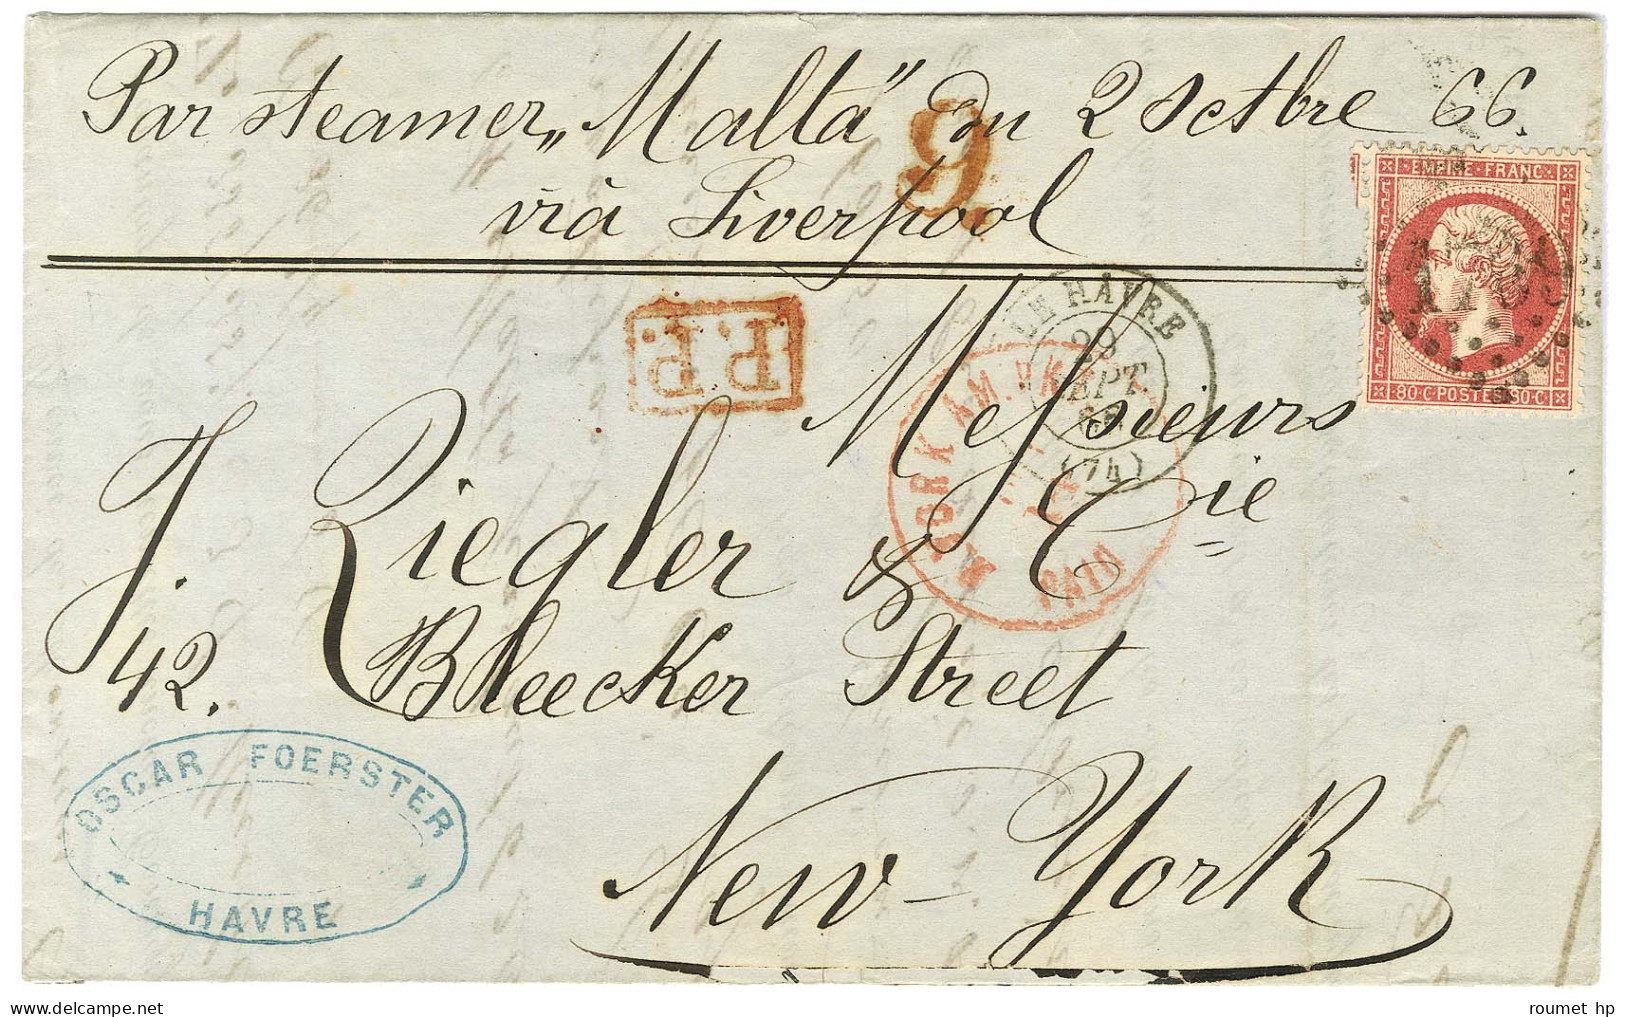 Par steamer „Malta" du 2 Octbre 66.
9
viâ Liverpool
EMPIRE FRANC
1769
80 C POSTES 80 C
LE HAVRE
29
SEPT.
66
(74)
P.P.
YORK AM. PKT
PAID
Messieurs
J. Ziegler & Cie
42. Bleecker Street
New-York
OSCAR FOERSTER
HAVRE
roumet hp
www.delcampe.net